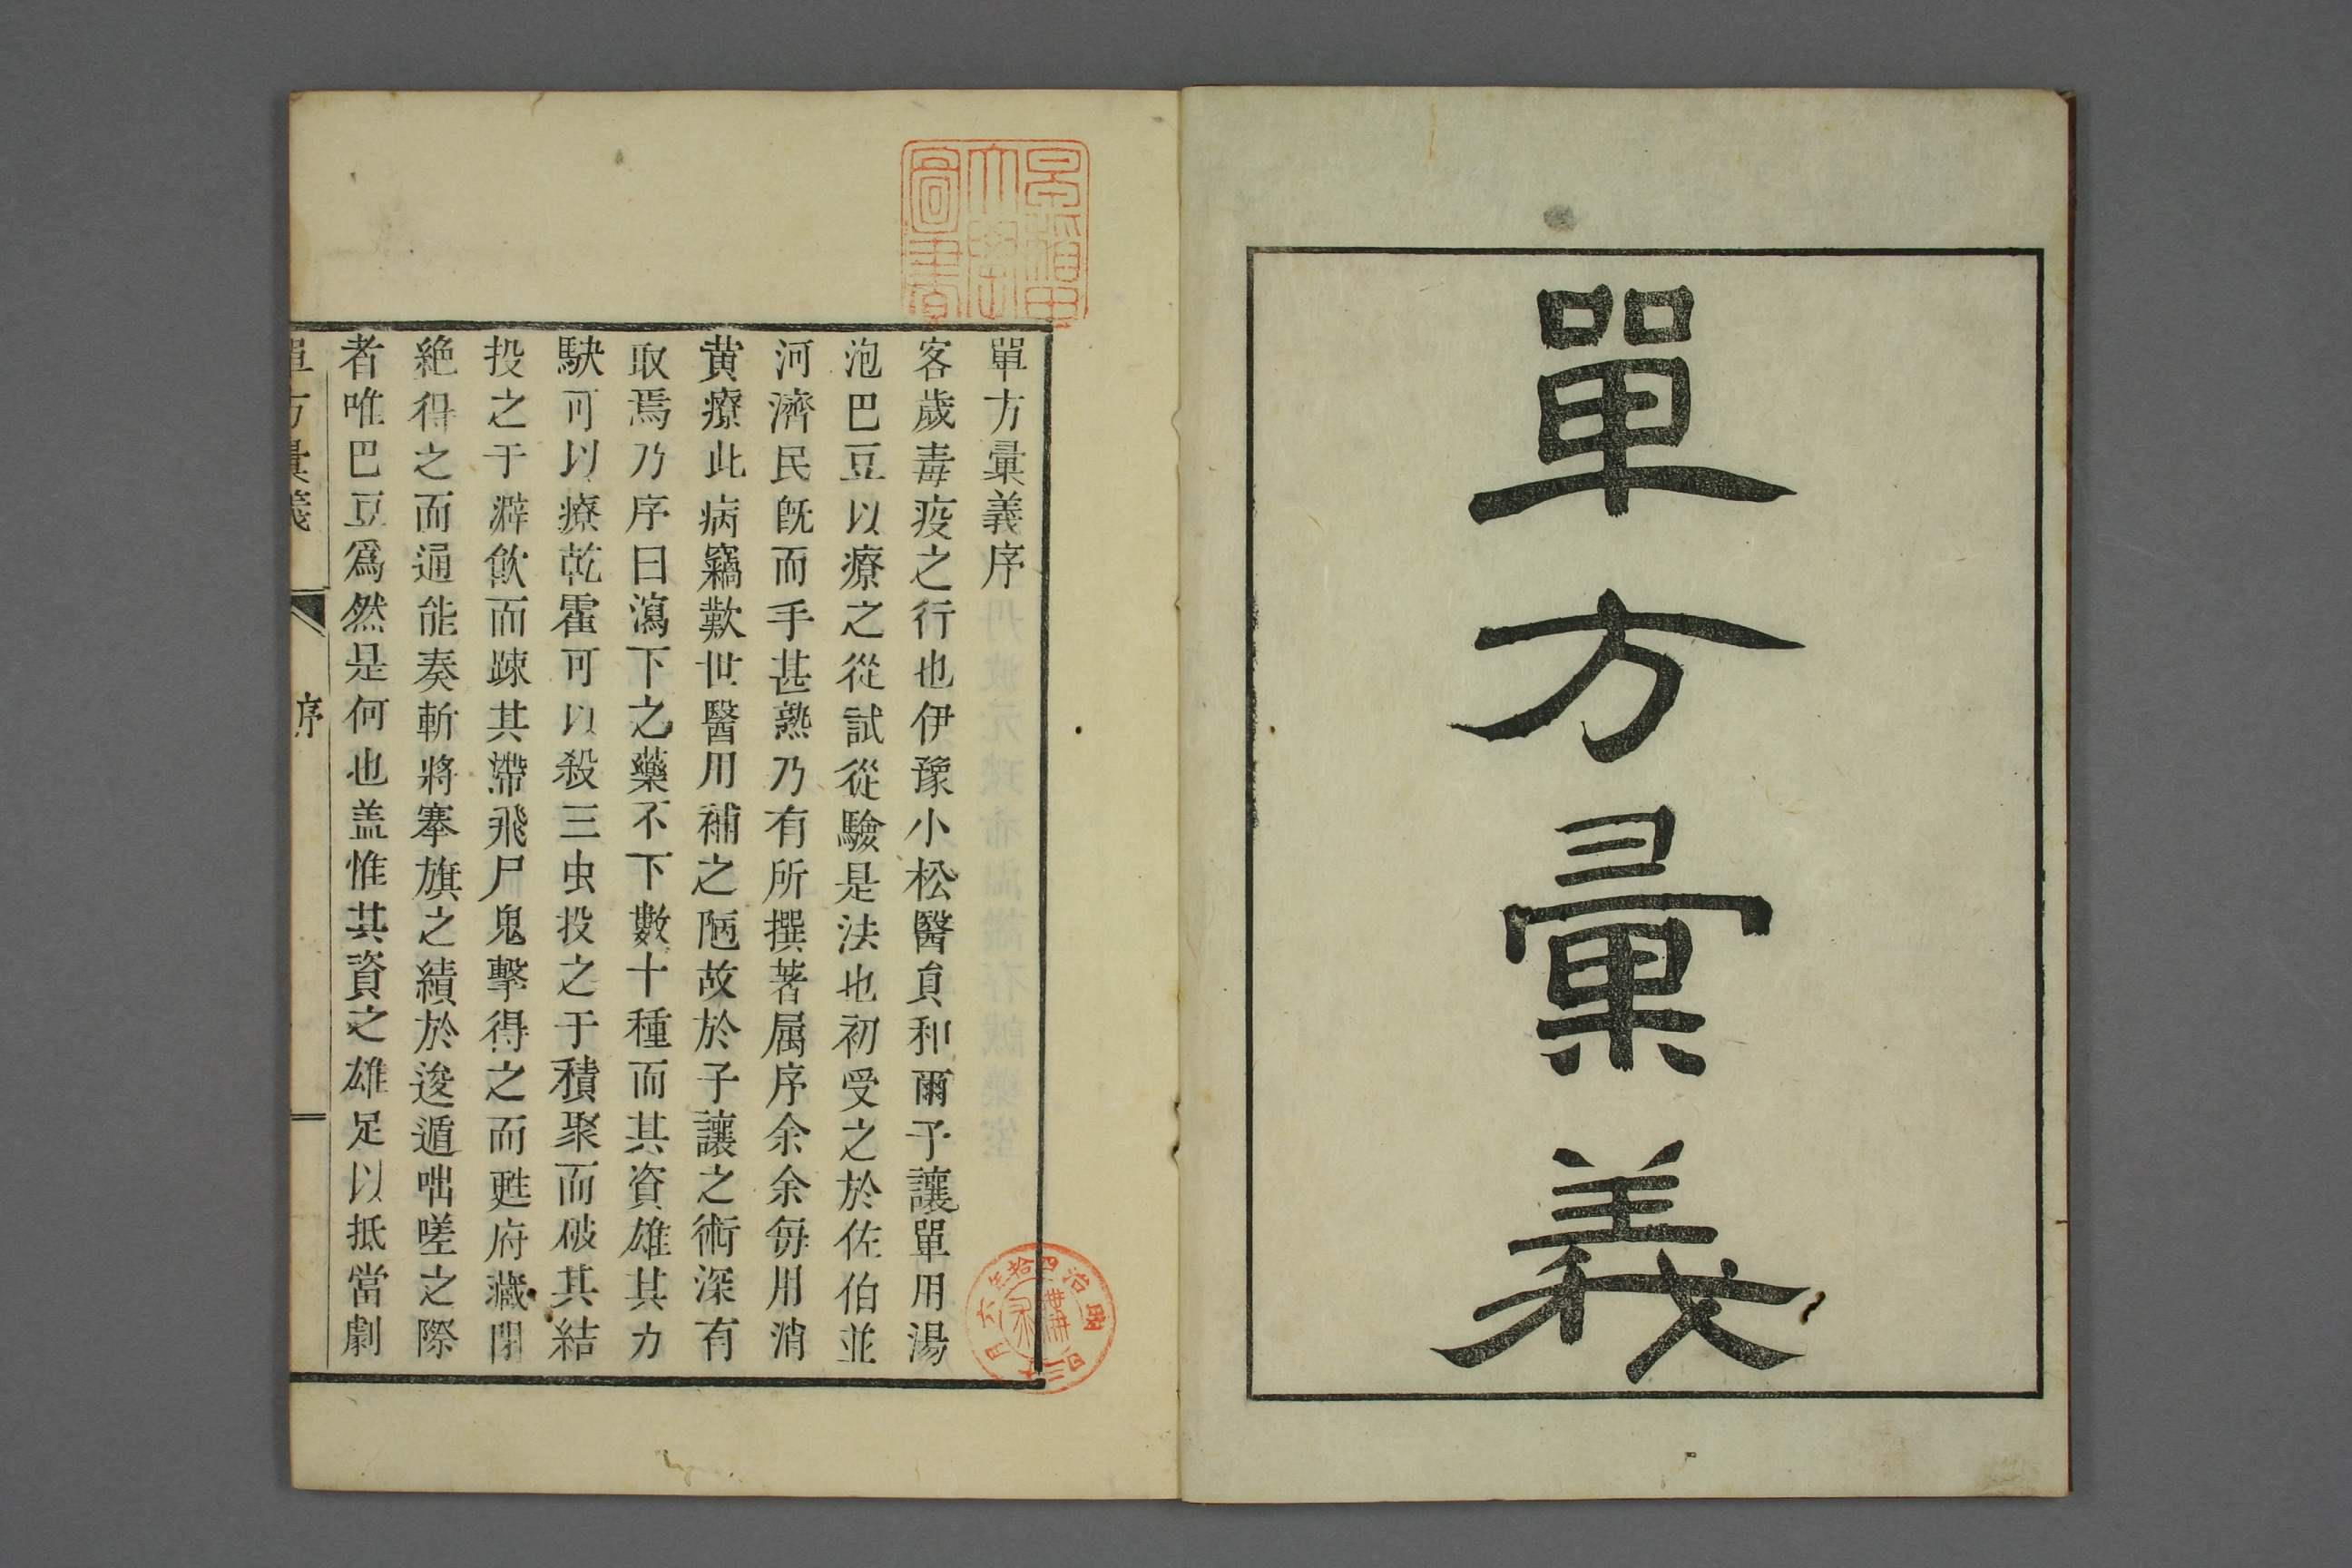 單方彙義
早稻田
大學
圖書
單方彙義序
客歲毒疫之行也伊豫小松醫員和爾子讓單用湯
泡巴豆以療之從試從驗是法也初受之於佐伯並
河濟民既而手甚熟乃有所撰著属序余余每用消
黄療此病竊歎世醫用補之陋故於子讓之術深有
取焉乃序曰瀉下之藥不下數十種而其資雄其力
駃可以療乾霍可以殺三虫投之于積聚而破其結
投之于澼飲而踈其滯飛尸鬼擊得之而甦府藏閉
絶得之而通能奏斬將搴旗之績於逡遁咄嗟之際
者唯巴豆爲然是何也盖惟其資之雄足以抵當劇
單方彙義
序
明治四拾年六月